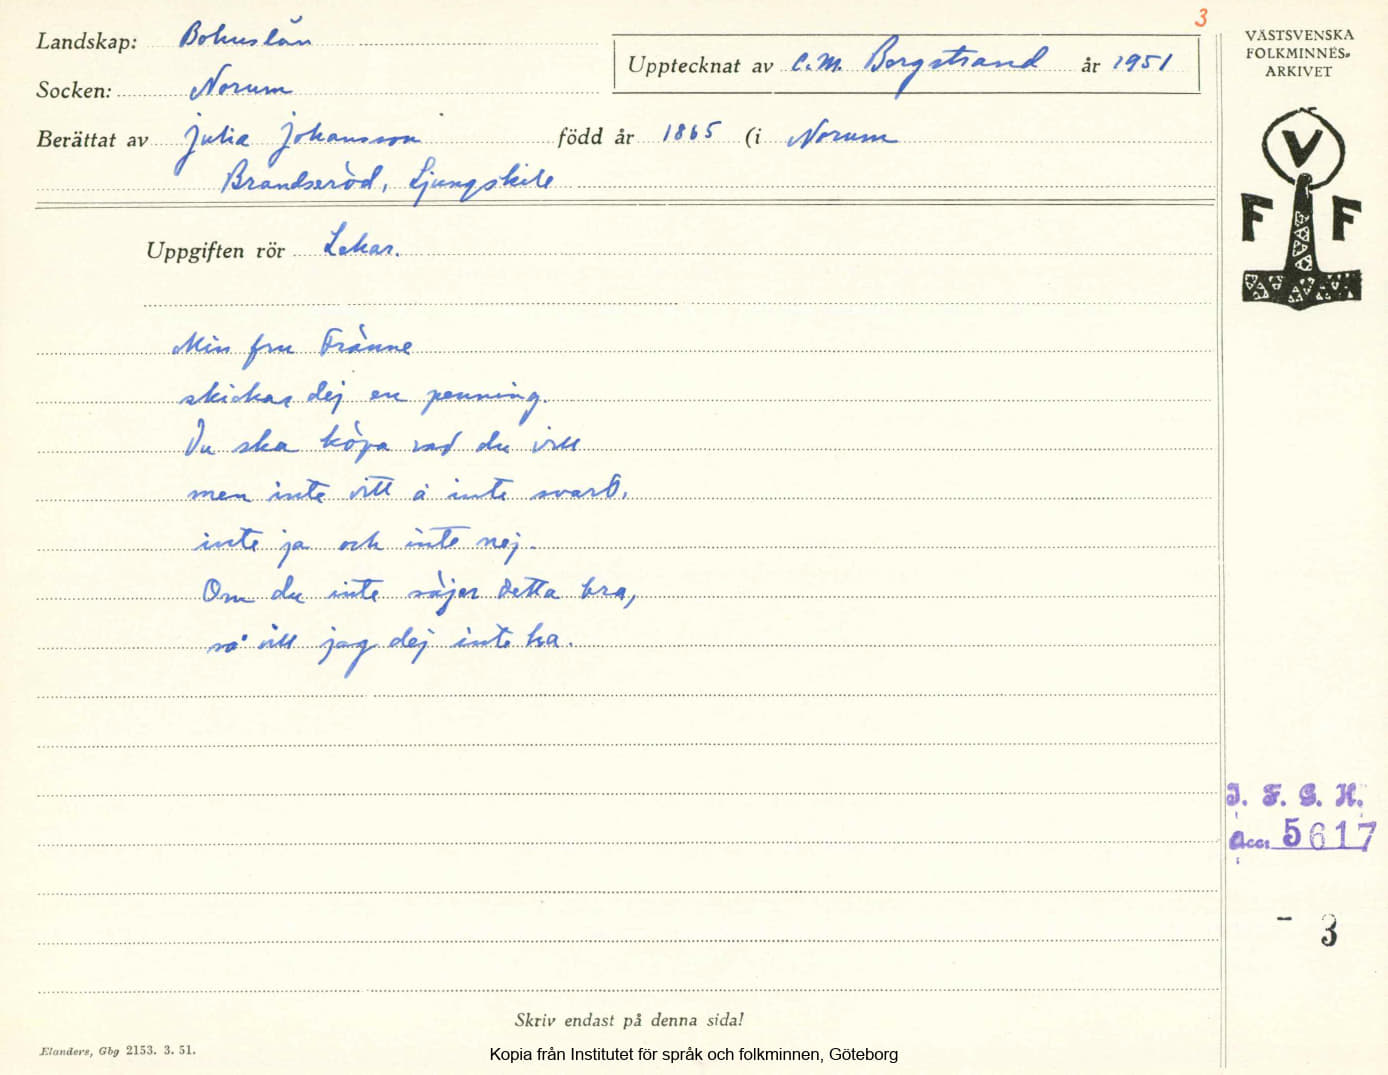 3
Landskap: Bohuslän
Upptecknat av C.M. Bergstrand år 1951
Socken: Norum
Berättat av Julia Johansson född år 1865 (i Norum
Brandseröd, Ljungskile
Uppgiften rör Lekar.
Min fru Fränne
skickar dej en penning.
Du ska köpa vad du vill
men inte vitt å inte svart,
inte ja och inte nej.
Om du inte säjer detta bra,
så vill jag dej inte ha.
Skriv endast på denna sida!
Elanders, Gbg 2153. 3. 51.
Kopia från Institutet för språk och folkminnen, Göteborg
VÄSTSVENSKA
FOLKMINNES-
ARKIVET
V
F F
I. F. G. H.
Acc: 5617
- 3